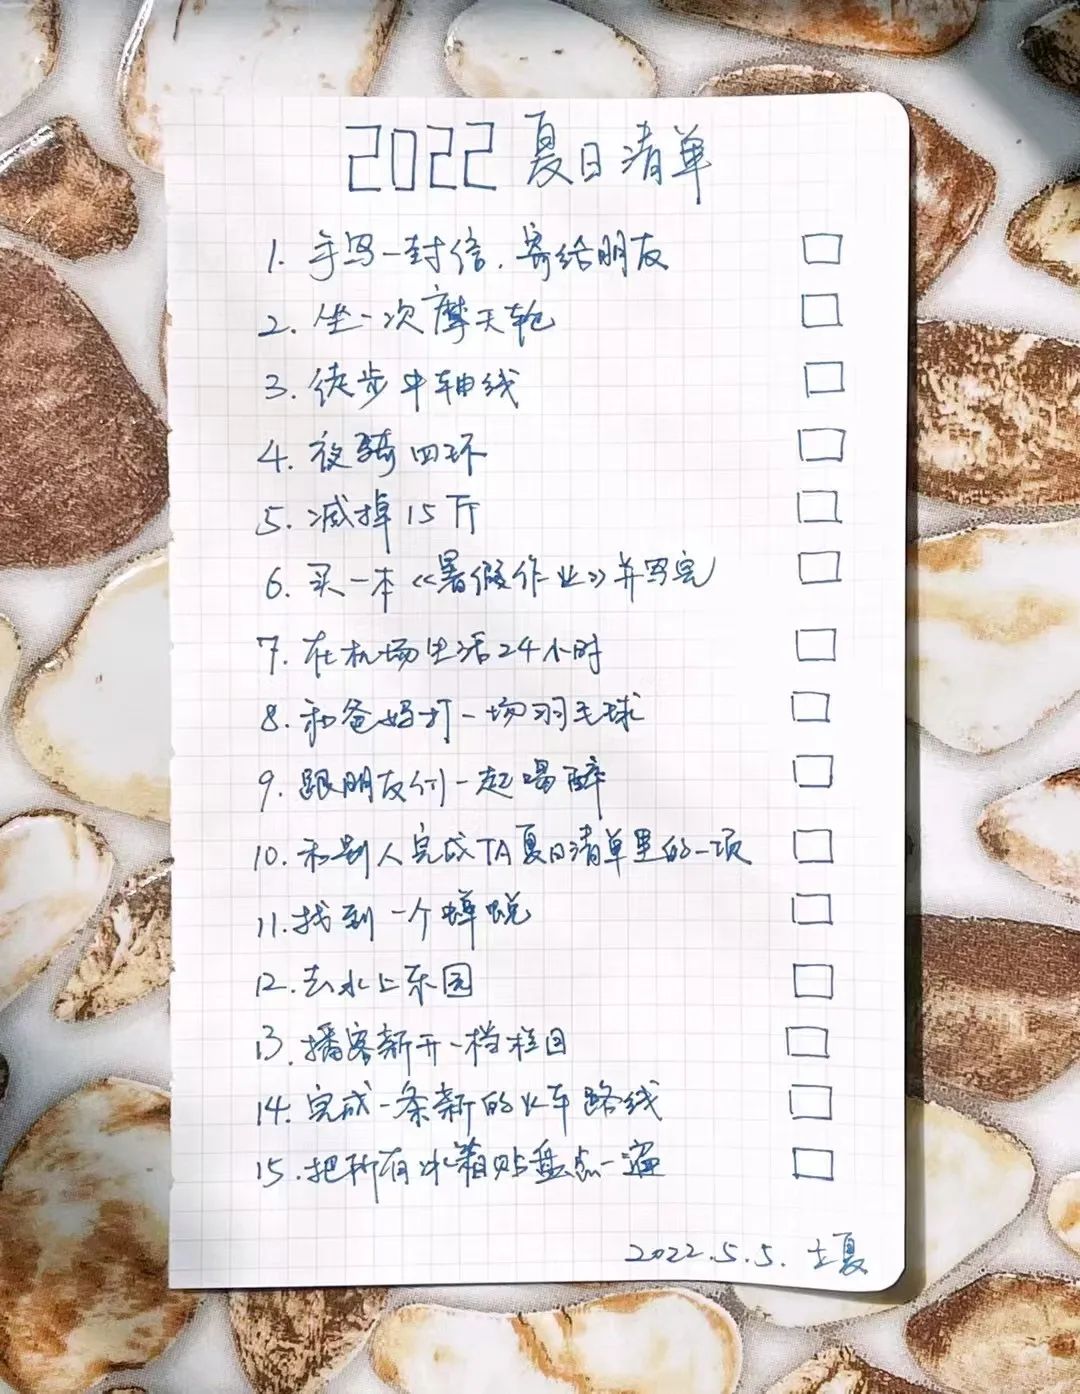 2022 夏日清单
1. 手写一封信，寄给朋友
2. 坐一次摩天轮
3. 徒步中轴线
4. 夜骑四环
5. 减掉15斤
6. 买一本《暑假作业》并写完
7. 在机场生活24小时
8. 和爸妈打一场羽毛球
9. 跟朋友们一起喝醉
10. 和别人完成TA夏日清单里的一项
11. 找到一个蝉蜕
12. 去水上乐园
13. 播客新开一档栏目
14. 完成一条新的火车路线
15. 把所有冰箱贴盘点一遍
2022.5.5. 立夏